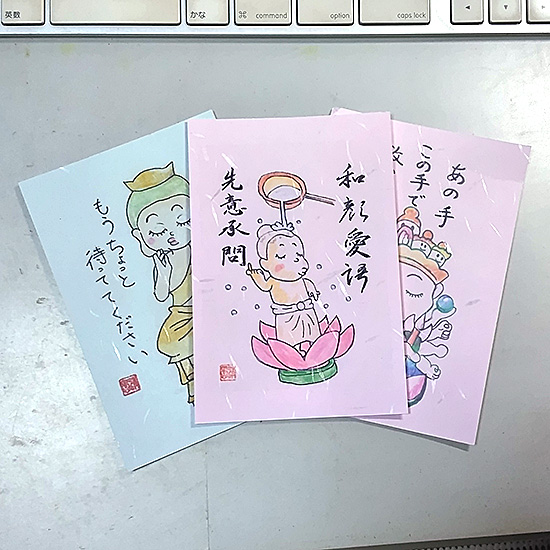 英数
かな
⌘ command
option
caps lock
もうちょっと
待っててください
和顔愛語
先意承問
あの手
この手で